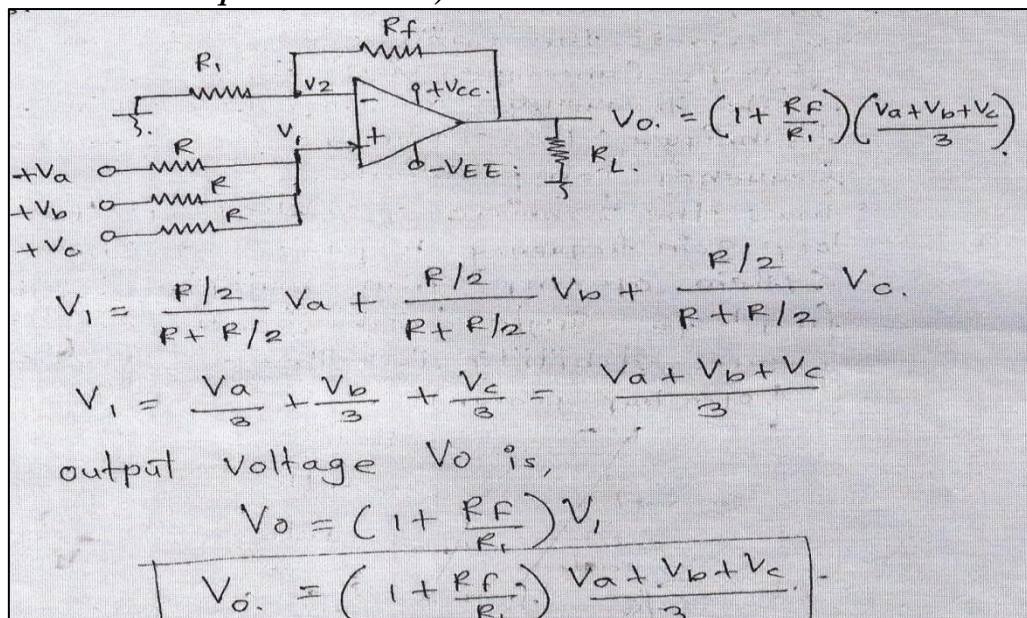 Rf
R1
V2
+Vcc.
Vo. = (1 + RF/R1)(Va+Vb+Vc/3)
V1
R
+Va
-VEE
RL.
R
+Vb
R
+Vc
V1 = R/2 / R+R/2 Va + R/2 / R+R/2 Vb + R/2 / R+R/2 Vc.
V1 = Va/3 + Vb/3 + Vc/3 = Va+Vb+Vc/3
output voltage Vo is,
Vo = (1 + RF/R1) V1
Vo. = (1 + Rf/R1) Va+Vb+Vc/3